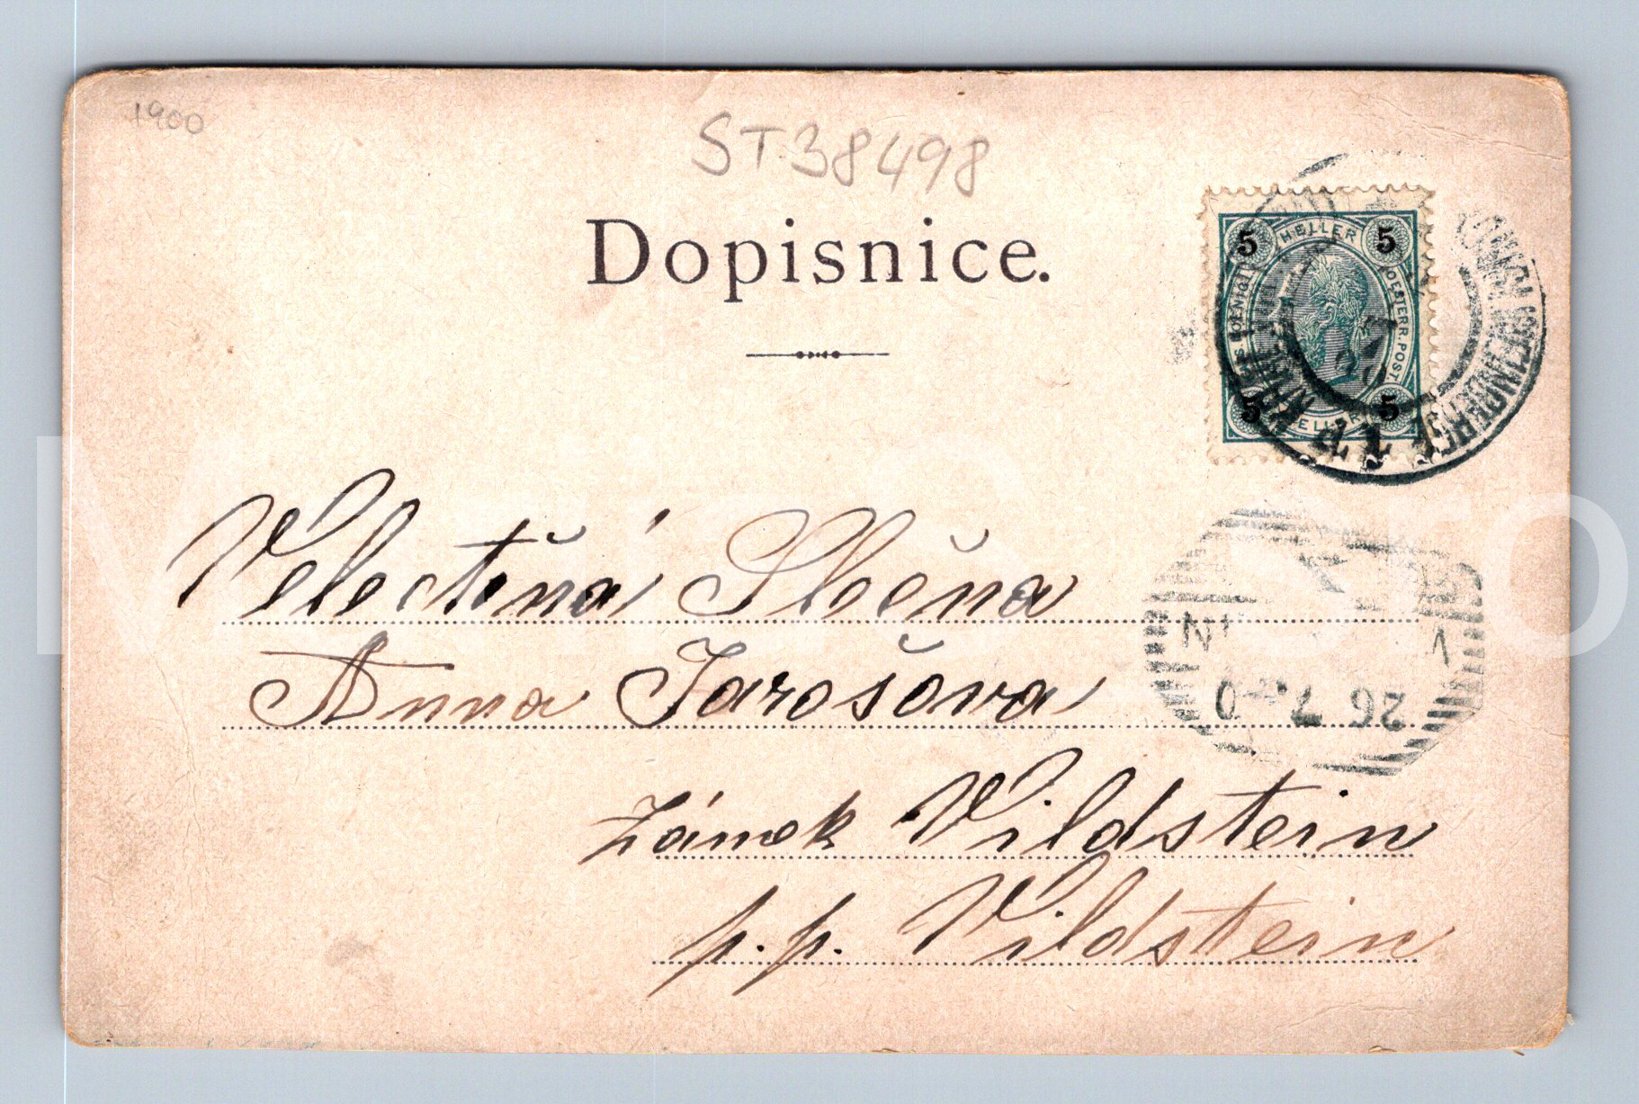 1900
ST.38498
Dopisnice.
5 HELLER 5
OESTERR. POST.
5 5
KÖNIGL. WEINBERGE
Velectěná Slečna
Anna Jarošova
26 7
zámek Vildstein
p.p. Vildstein